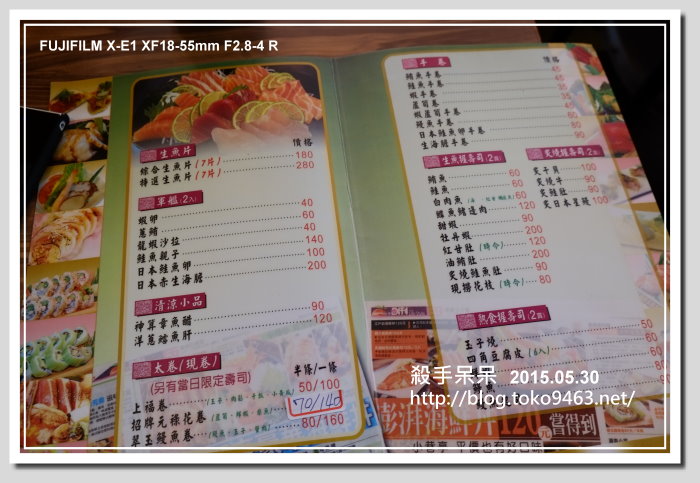 FUJIFILM X-E1 XF18-55mm F2.8-4 R
生魚片 價格
綜合生魚片(7片) 180
特選生魚片(7片) 280
軍艦(2入)
蝦卵 40
蔥鮪 60
龍蝦沙拉 40
鮭魚親子 140
日本鮭魚卵 100
日本赤生海膽 200
清涼小品
神算章魚醋 90
洋蔥鱈魚肝 120
太卷(現卷) 半條/一條
(另有當日限定壽司)
上福卷 50/100
招牌元祿卷 70/140
翠玉鰻魚卷 80/160
手卷 價格
鮪魚手卷 45
鮭魚手卷 45
蝦手卷 35
蘆筍手卷
蝦蘆筍手卷
鰻魚手卷
日本鮭魚卵手卷
生海膽手卷 90
生魚握壽司(2貫)
鮪魚 60
鮭魚 60
白肉魚
鱷魚鰭邊肉 120
甜蝦
牡丹蝦
紅甘肚(時令)
油鮪肚
炙燒鮭魚肚 90
現撈花枝(時令) 80
炙燒握壽司(2貫)
炙干貝 100
炙燒牛 90
炙鮭肚 90
炙日本星鰻 100
熟食握壽司(2貫)
玉子燒 50
四角豆腐皮(6入) 60
殺手呆呆 2015.05.30
http://blog.toko9463.net/
澎湃海鮮丼120元嘗得到
小巷亭 平價也有好口味